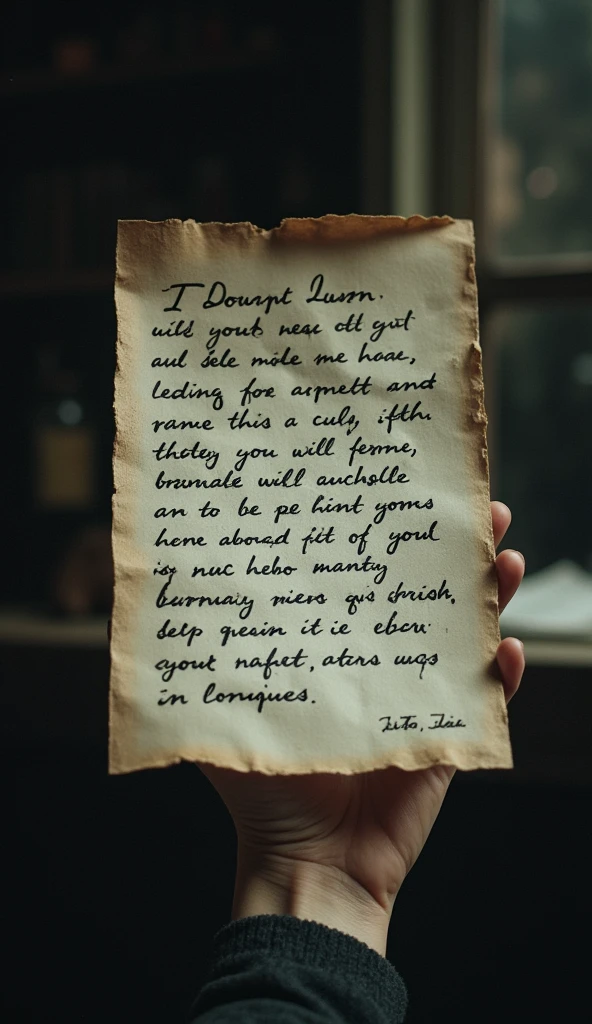 I Dourpt Lusrn.
uild youb near ott gut
aul sele mole me haar,
leding foe arpnett and
rame this a culs, ifth.
thotey you will ferme,
brumale will auchslle
an to be pe hint yoms
hene aboad fit of youl
nuc hebo manty
burmaiy niers qis chrish,
selp qreain it ie ebcu.
ayout nafet, aters
in loniques.